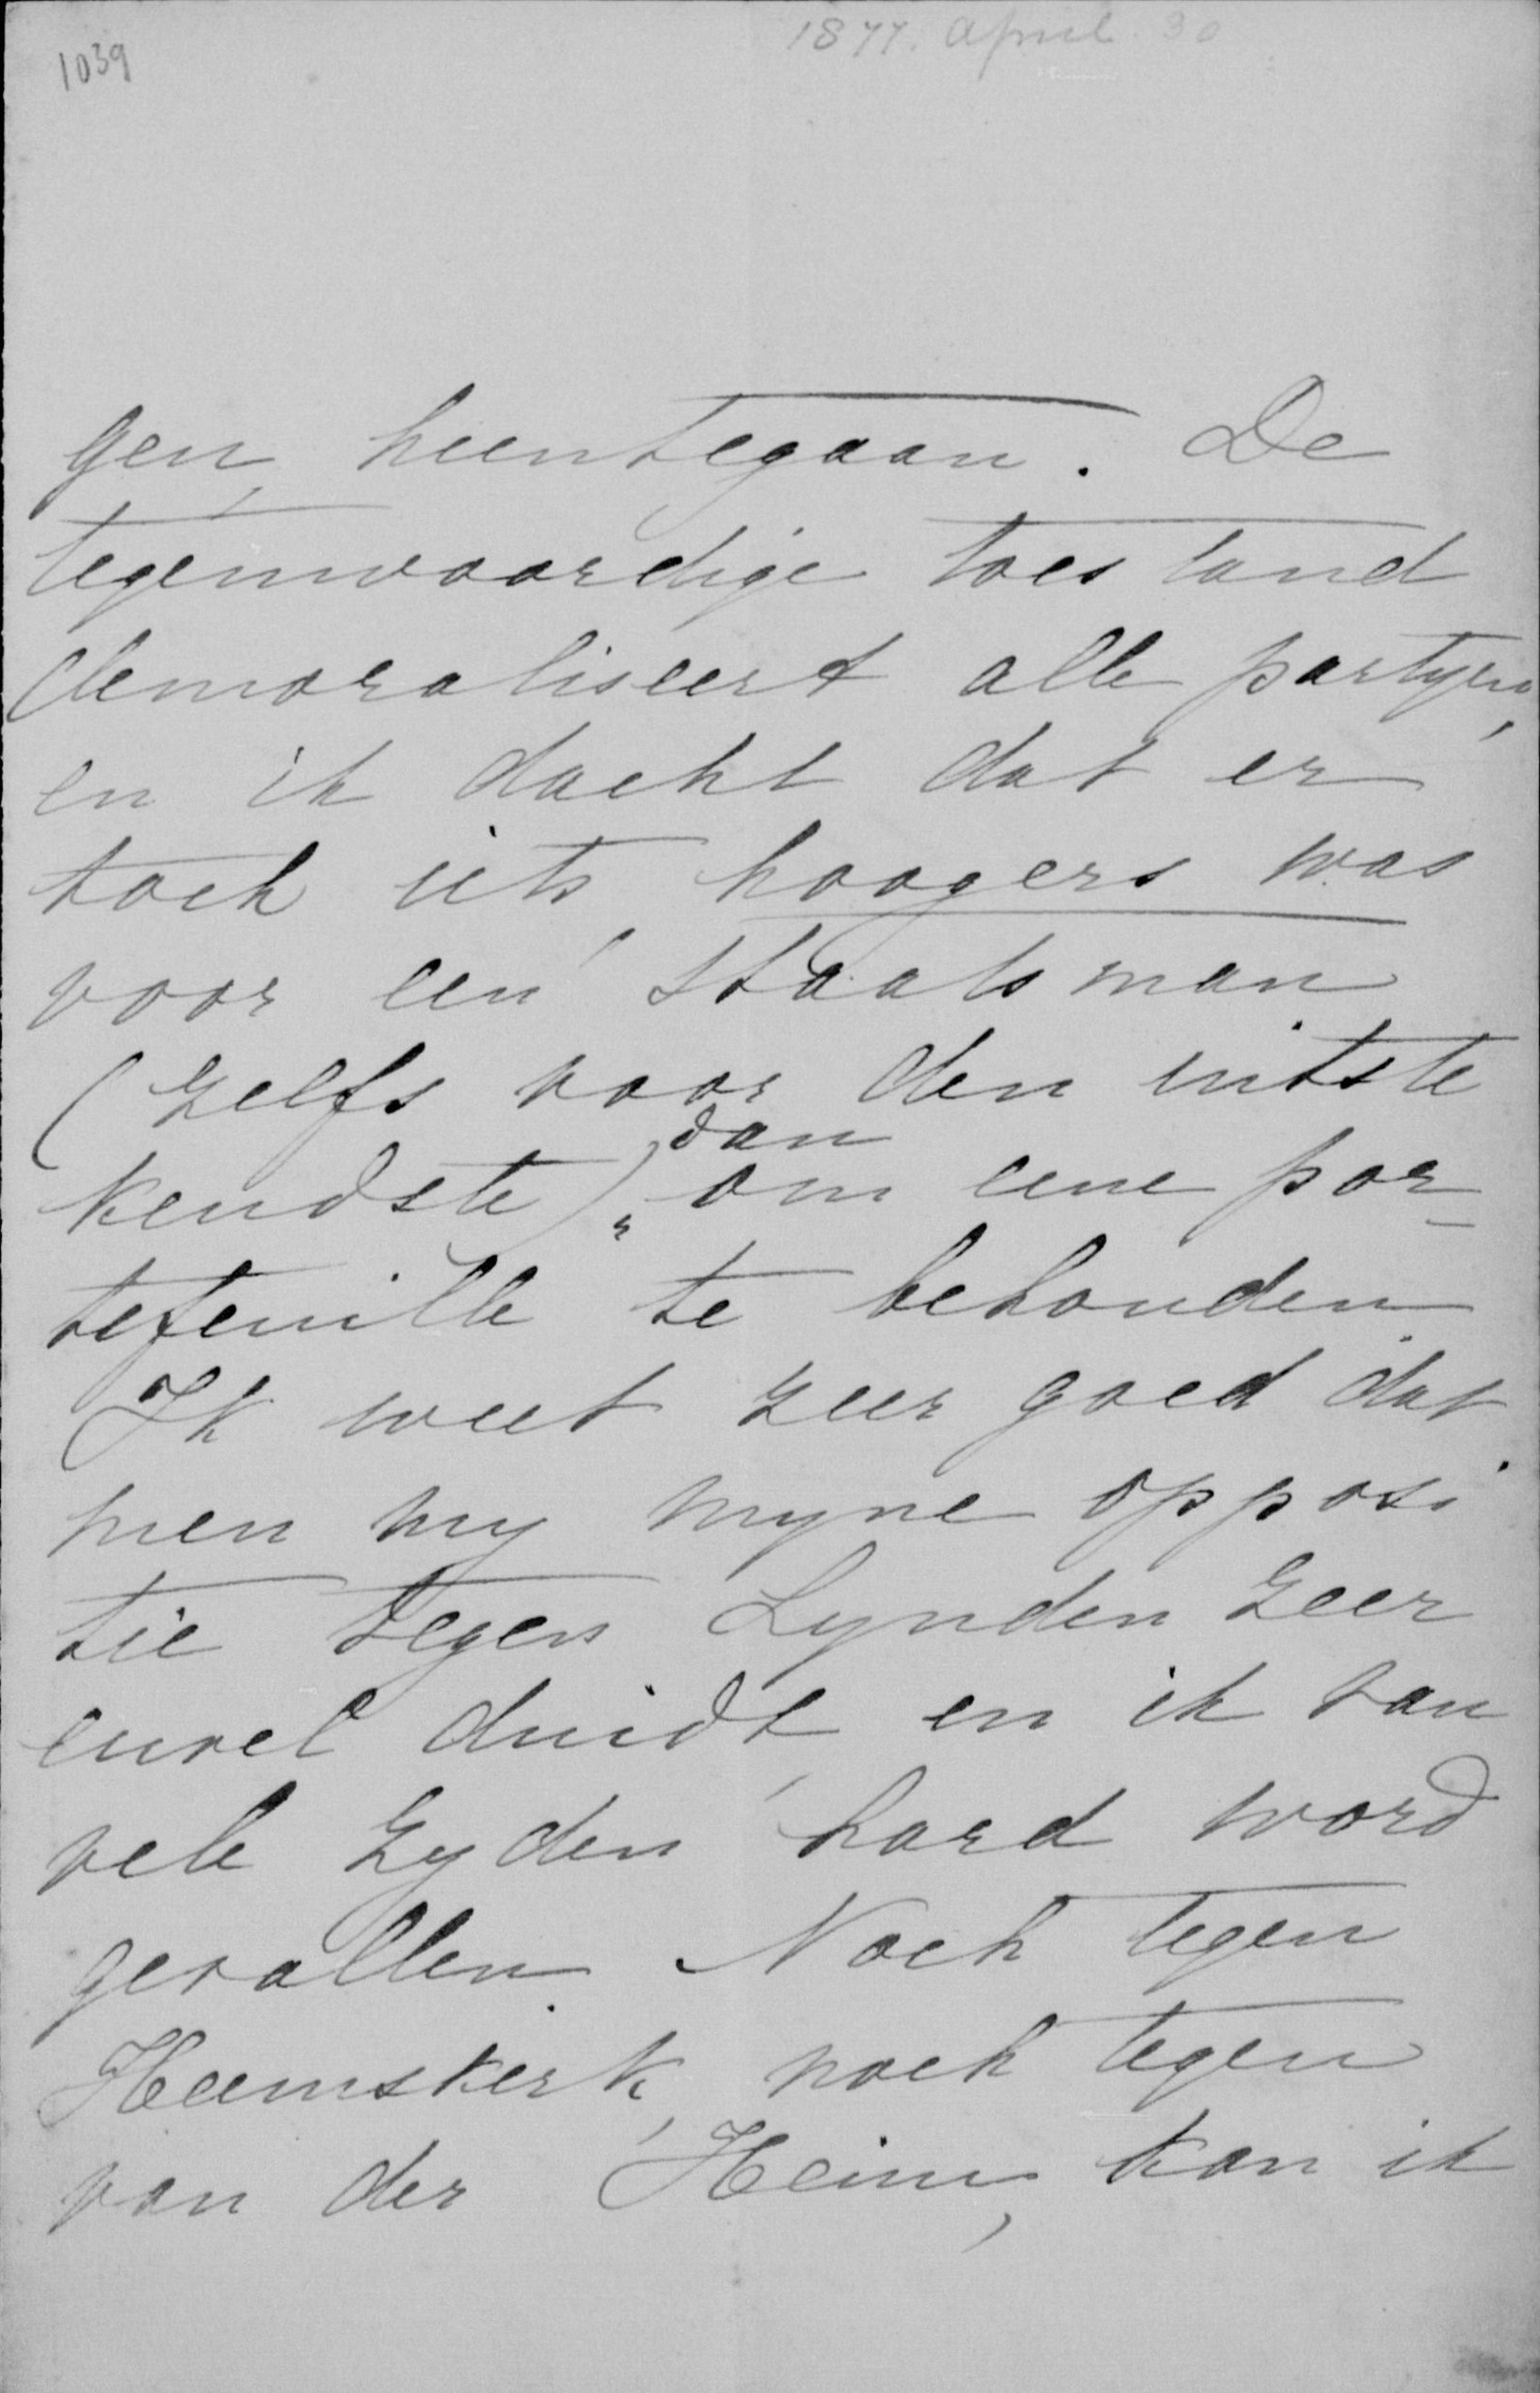 1877. April 30
1039
gen, heentegaan. De
tegenwoordige toestand
demoraliseert alle partyen,
en ik dacht dat er
toch iets hoogers was
voor een staatsman
(zelfs voor den uitste
kendste), dan om eene por-
tefeuille te behouden.
Ik weet zeer goed dat
men my myne opposi
tie tegen Lynden zeer
euvel duidt en ik van
vele zyden hard word
gevallen. Noch tegen
Heemskerk, noch tegen
van der Heim, kan ik